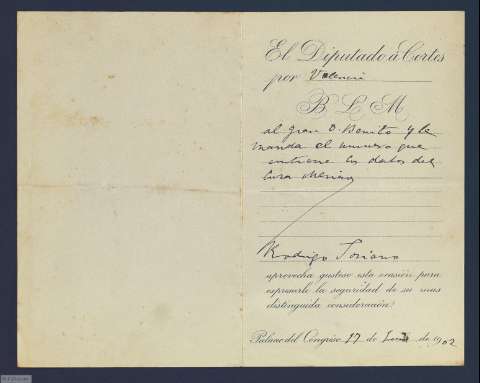 El Diputado á Cortes
por Valencia
B L M
al gran D. Benito y le
manda el numero que
contiene los datos del
cura Merino
Rodrigo Soriano
aprovecha gustoso esta ocasión para
expresarle la seguridad de su mas
distinguida consideración.
Palacio del Congreso 17 de de 1902